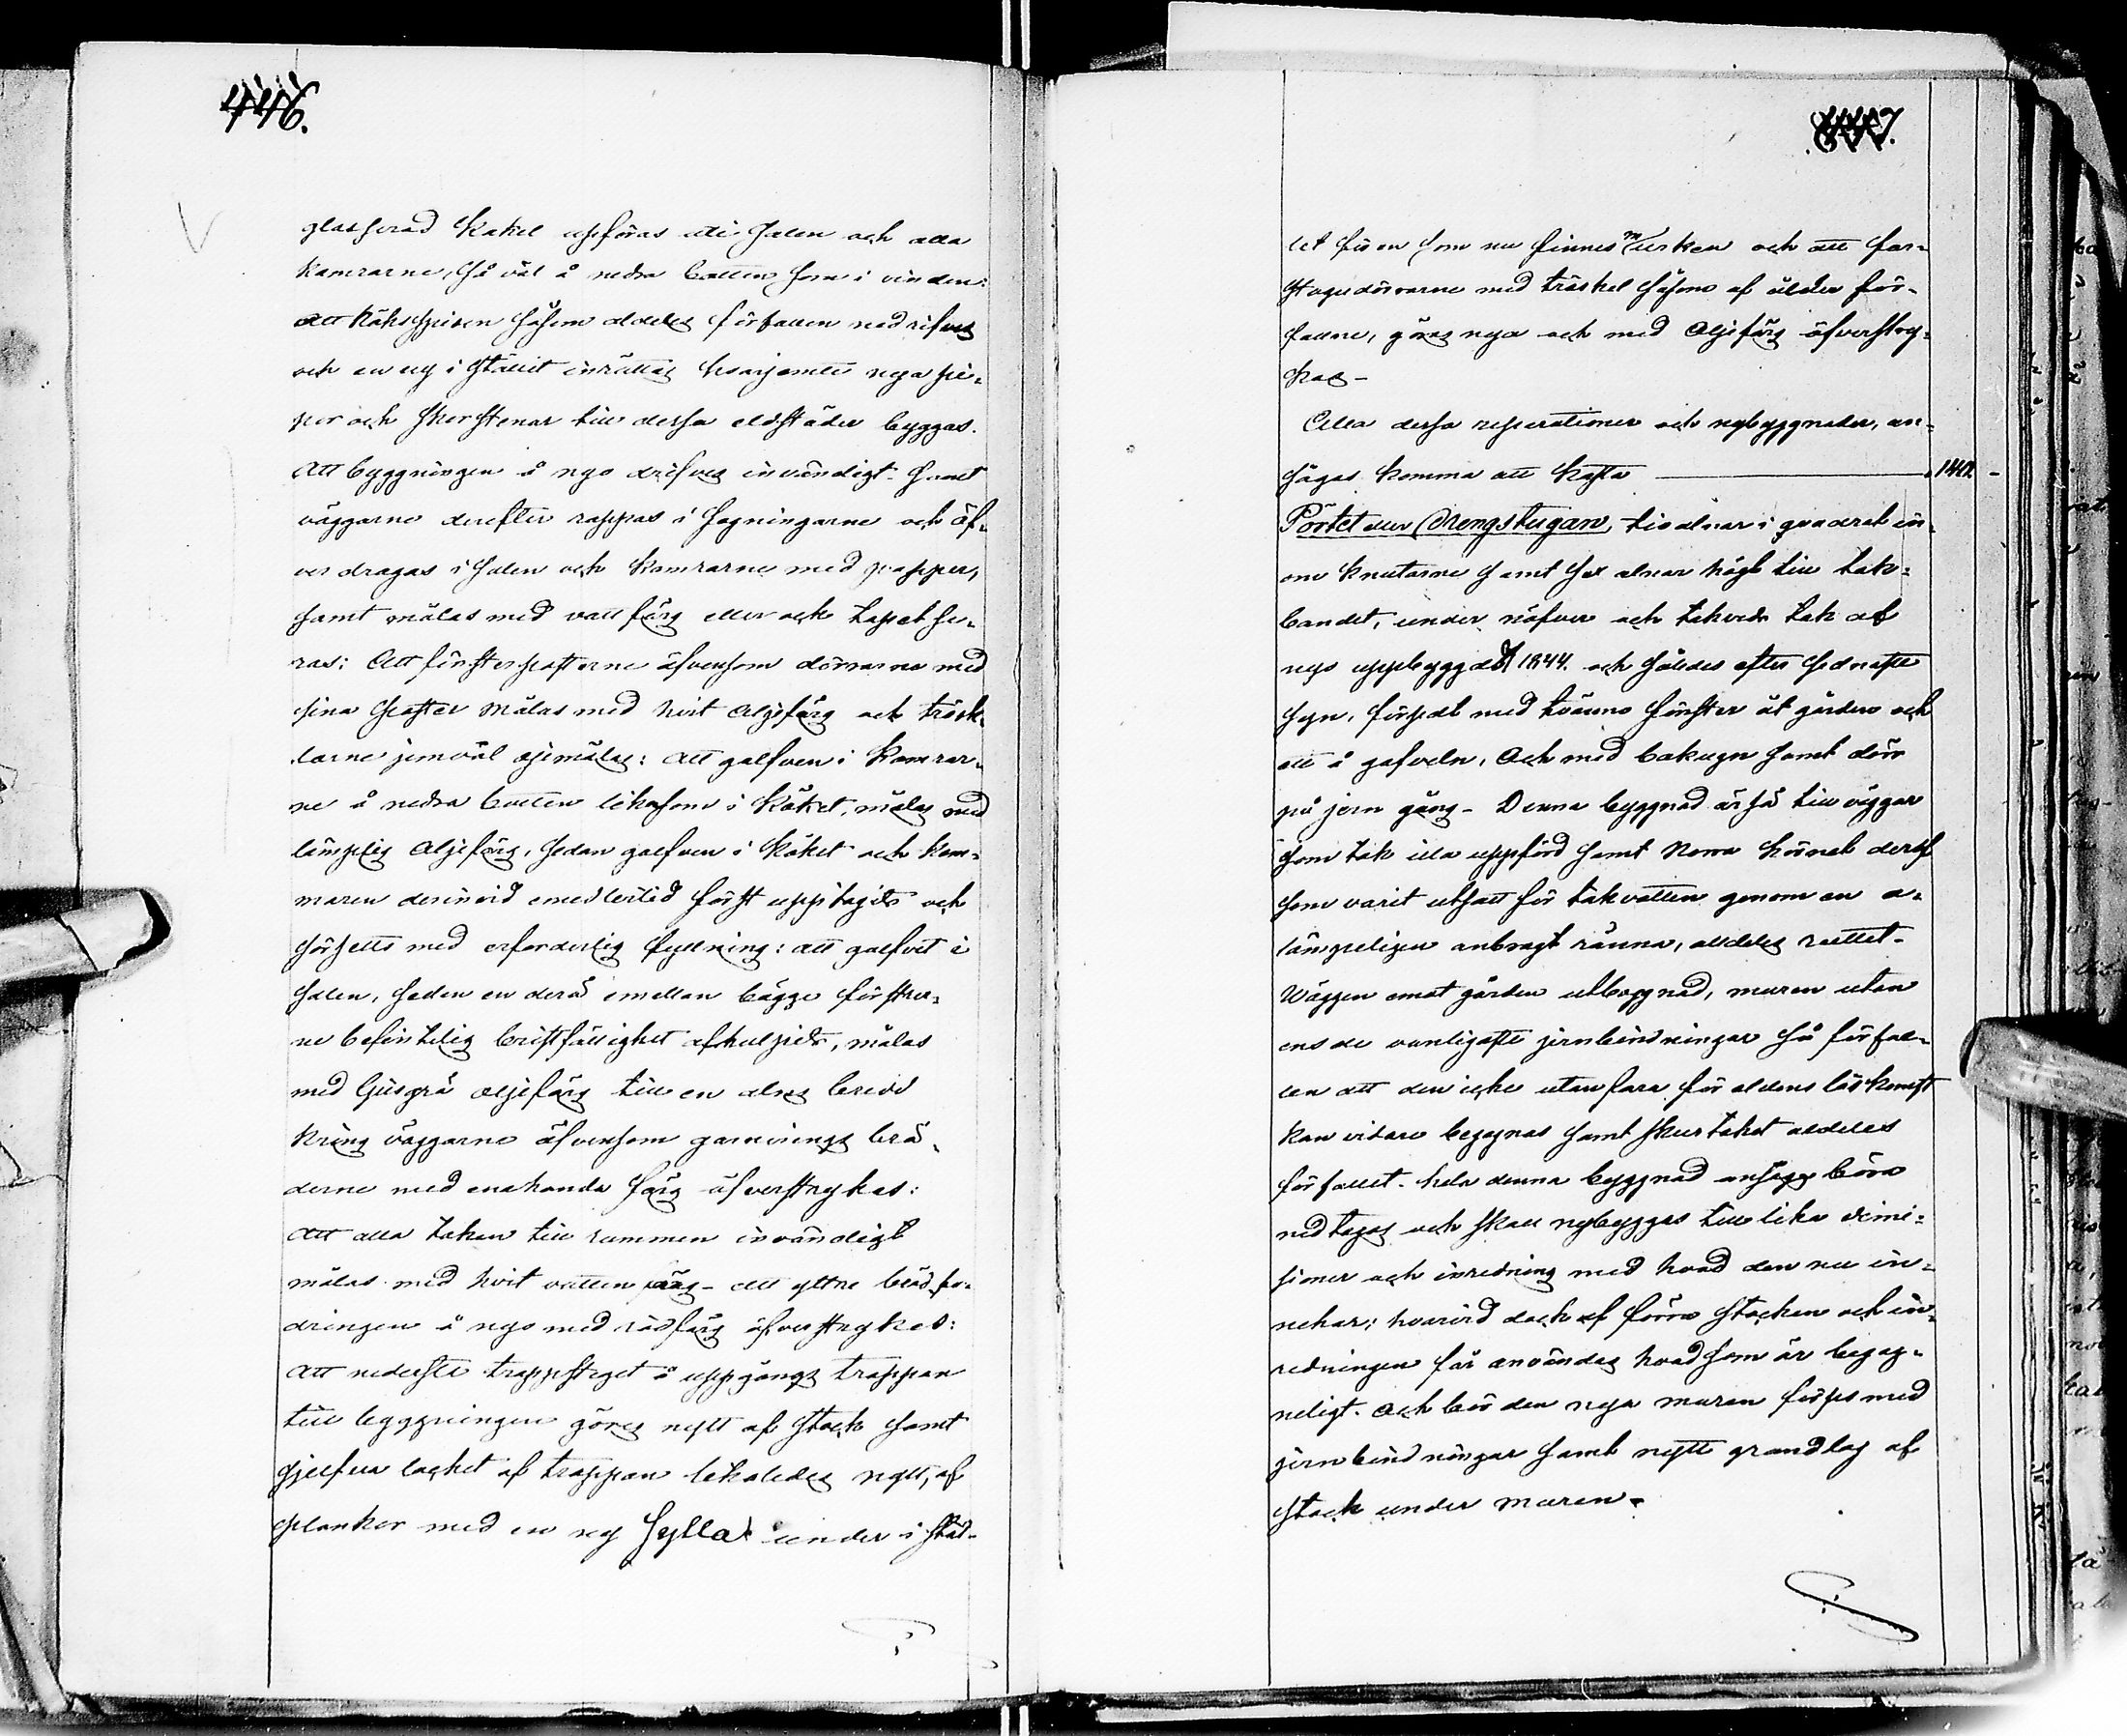 446.
glasserad kakel uppföras uti salen och alla
kamrarne, så väl å nedra botten som i vinden:
att köksspisen såsom aldeles förfallen nedrifves
och en ny i stället inrättas hvarjemte nya pi-
por och skorstenar till dessa eldstäder byggas.
Att byggningen å nyo drifves invändigt samt
väggarne derefter rappas i fogningarne och öf-
verdragas i salen och kamrarne med papper,
samt målas med vattfärg eller ock tapetse-
ras: Att fönsterposterne äfvensom dörrarne med
sina poster målas med hvit oljefärg och trösk-
larne jemväl oljemålas: att golfven i kamrar-
ne å nedra botten likasom i köket, målas med
lämplig oljefärg, sedan golfven i köket och kam-
maren derinvid emedlertid först upptagits och
försetts med erforderlig fyllning: att golfvet i
salen, sedan en derå emellan bägge fönstre-
ne befintelig bristfällighet afhulpits, målas
med ljusgrå oljefärg till en alns bredd
kring väggarne äfvensom garnerings brä-
derne med enahanda färg öfverstrykes:
Att alla taken till rummen invändigt
målas med hvit vattenfärg - att yttre brädfo-
dringen å nyo med rödfärg öfverstrykes:
Att nedersta trappsteget å uppgångs trappan
till byggningen göres nytt af stock samt
sjelfva locket af trappan likaledes nytt, af
plankor med en ny sylla under i stäl-
447.
let för en som nu finnes murken och att far-
stugudörrarne med tröskel såsom af ålder för-
fallne, göras nya och med oljefärg öfverstry-
kas -
Alla dessa reparationer och nybyggnader, an-
sågos komma att kosta
Pörtet eller Drengstugan, tio alnar i quadrat in-
om knutarne samt sex alnar högt till tak-
bandet, under näfver och takveds tak af
nyo uppbyggdt 1844. och således efter sednaste
syn, försedt med tvänne fönster åt gården och
ett å gafveln, och med bakugn samt dörr
på jern gång - Denna byggnad är så till väggar
som tak illa uppförd samt norra hörnet deraf
som varit utsatt för takvatten genom en o-
lämpeligen anbragt ränna, alldeles ruttet -
Wäggen emot gården utbuggnad, muren utan
ens de vanligaste jernbindningar så förfal-
len att den icke utan fara för eldens löskomst
kan vidare begagnas samt skurtaket aldeles
förfallet. hela denna byggnad ansågs böra
nedtagas och skall nybyggas till lika dimen-
sioner och inredning med hvad den nu in-
nehar; hvarvid dock af förra stocken och in-
redningen får användas hvad som är begag-
neligt. Och bör den nya muren förses med
jernbindningar samt nytt grundlag af
stock under muren -